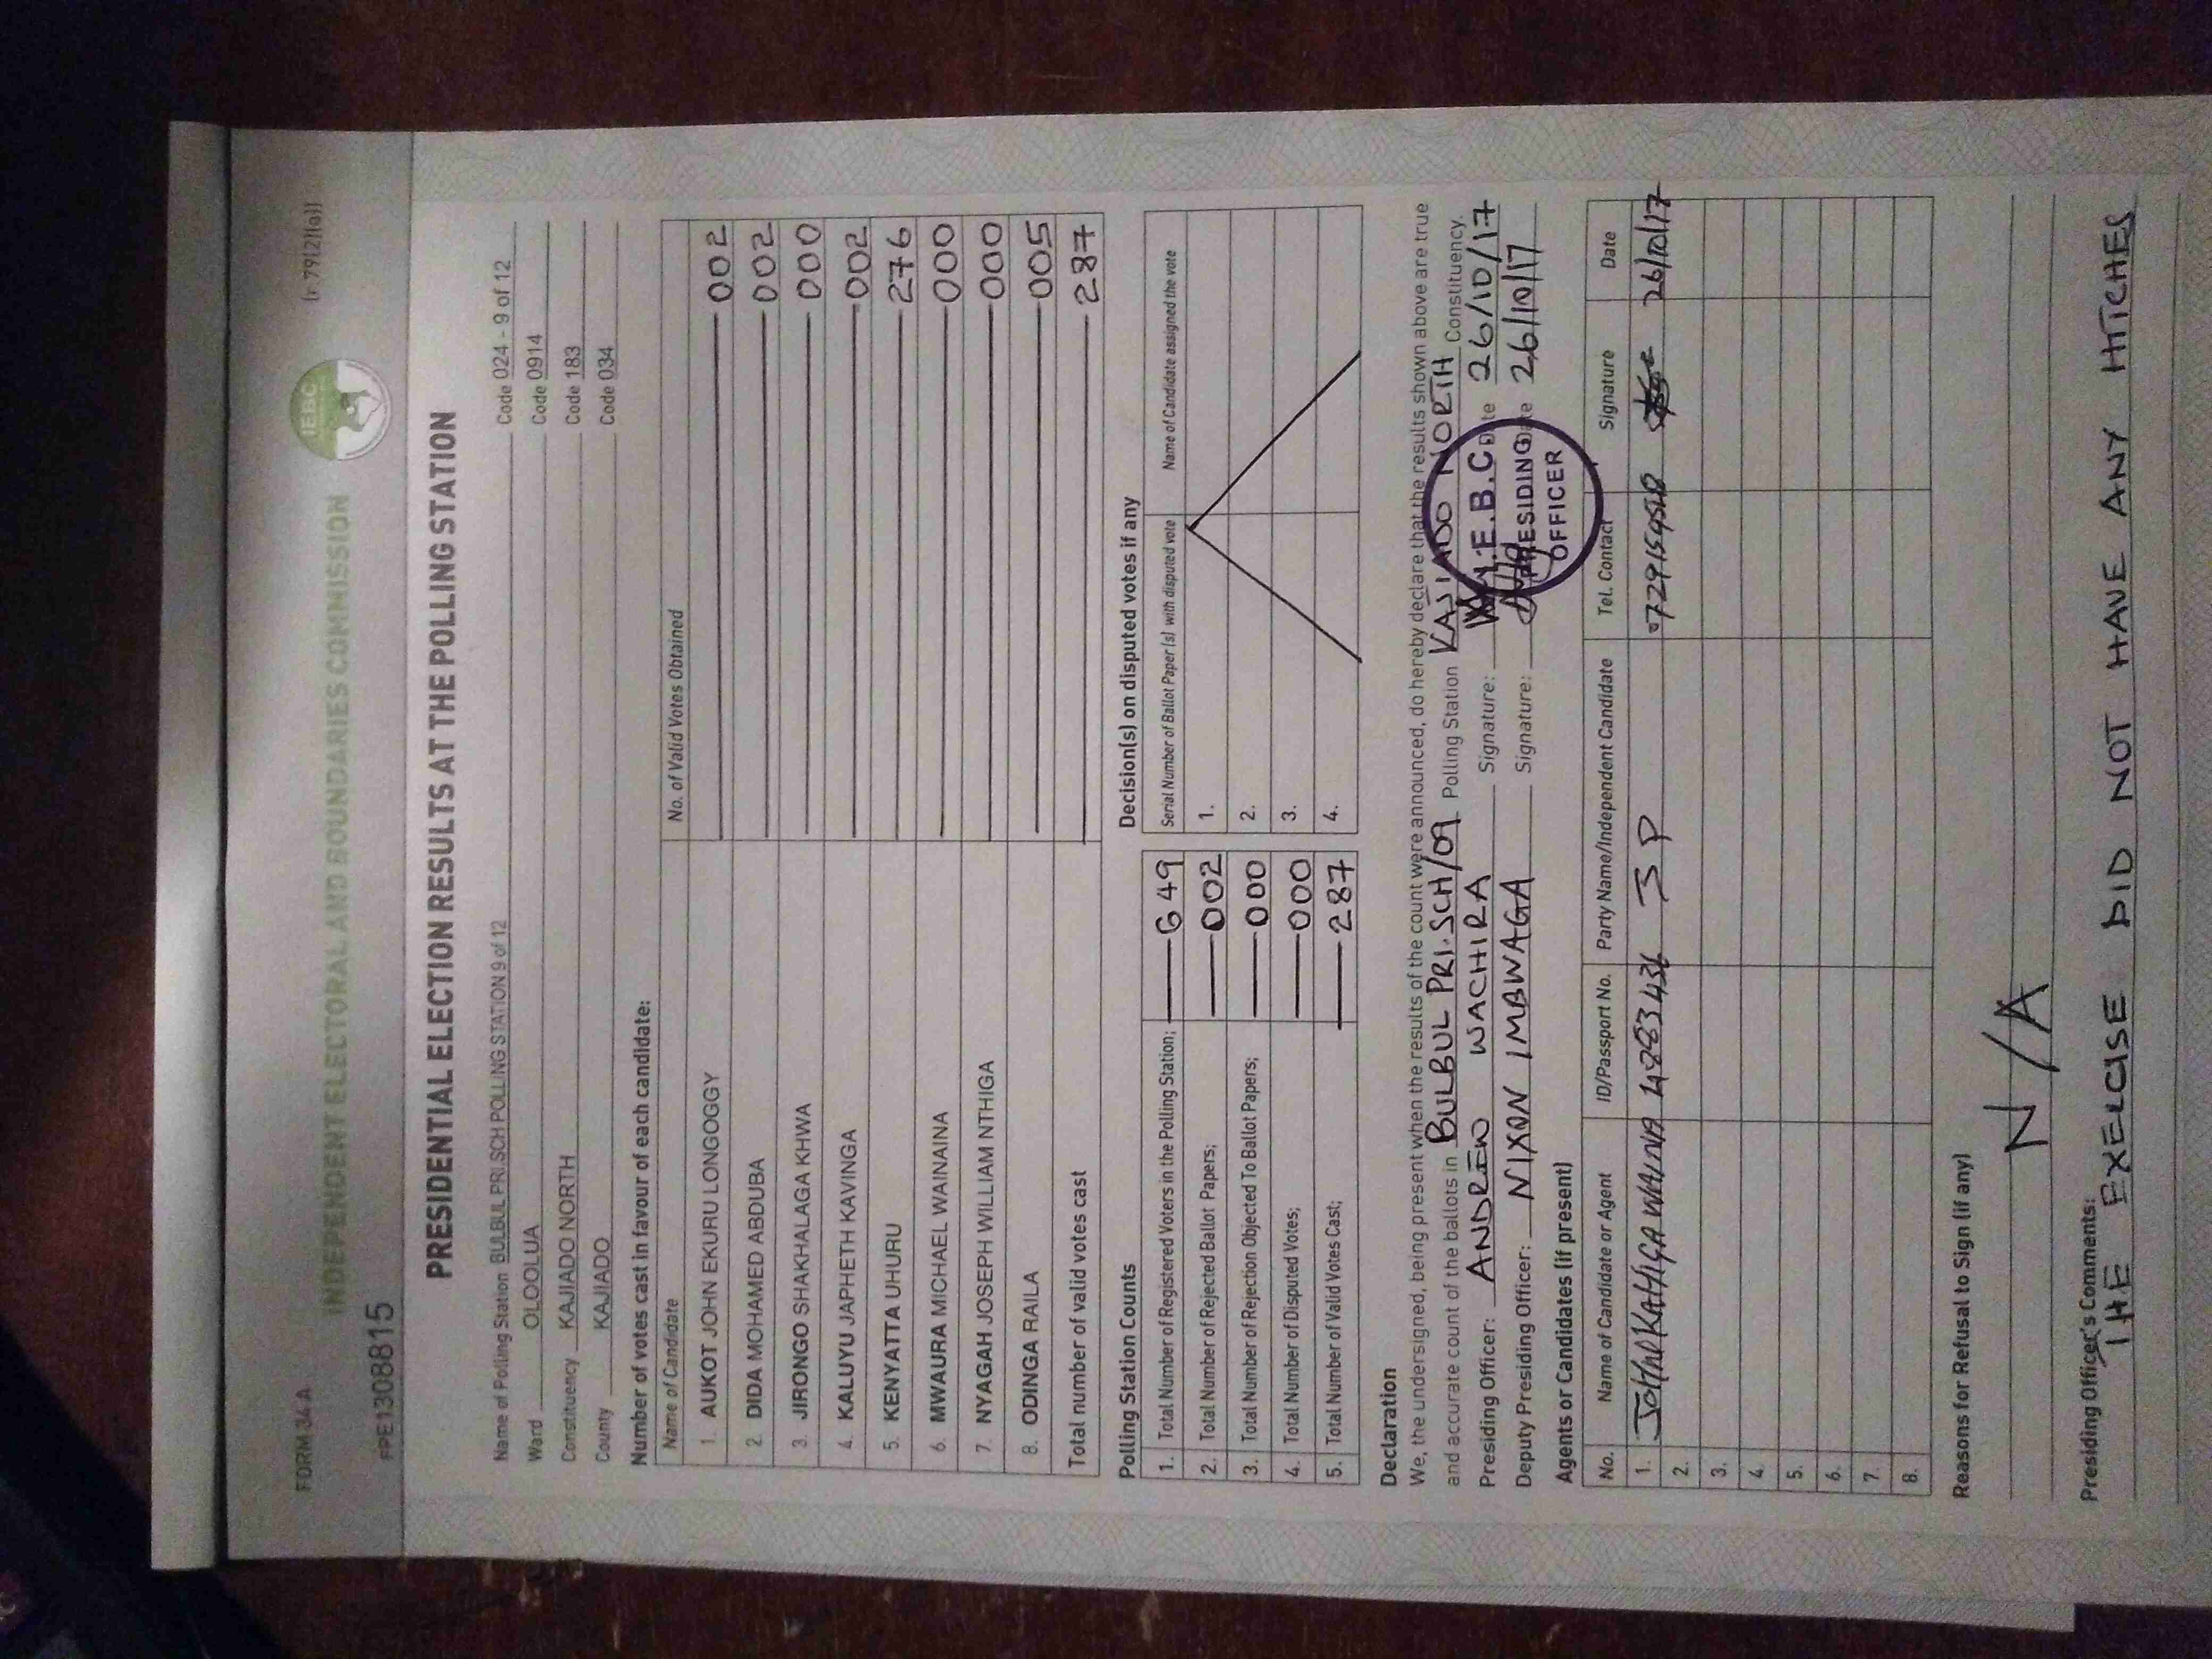 FORM 34 A
(r. 79(2)(a))
INDEPENDENT ELECTORAL AND BOUNDARIES COMMISSION
IEBC
FPE1308815
PRESIDENTIAL ELECTION RESULTS AT THE POLLING STATION
Name of Polling Station BULBUL PRI SCH POLLING STATION 9 of 12 Code 024 - 9 of 12
Ward OLOOLUA Code 0914
Constituency KAJIADO NORTH Code 183
County KAJIADO Code 034
Number of votes cast in favour of each candidate:
Name of Candidate No. of Valid Votes Obtained
1. AUKOT JOHN EKURU LONGOGGY 002
2. DIDA MOHAMED ABDUBA 002
3. JIRONGO SHAKHALAGA KHWA 000
4. KALUYU JAPHETH KAVINGA 002
5. KENYATTA UHURU 276
6. MWAURA MICHAEL WAINAINA 000
7. NYAGAH JOSEPH WILLIAM NTHIGA 000
8. ODINGA RAILA 005
Total number of valid votes cast 287
Polling Station Counts
1. Total Number of Registered Voters in the Polling Station; 649
2. Total Number of Rejected Ballot Papers; 002
3. Total Number of Rejection Objected To Ballot Papers; 000
4. Total Number of Disputed Votes; 000
5. Total Number of Valid Votes Cast; 287
Decision(s) on disputed votes if any
Serial Number of Ballot Paper (s) with disputed vote Name of Candidate assigned the vote
1.
2.
3.
4.
Declaration
We, the undersigned, being present when the results of the count were announced, do hereby declare that the results shown above are true
and accurate count of the ballots in BULBUL PRI.SCH/09 Polling Station KAJIADO NORTH Constituency.
Presiding Officer: ANDREW WACHIRA Signature: Date 26/10/17
Deputy Presiding Officer: NIXON IMBWAGA Signature: Date 26/10/17
I.E.B.C
PRESIDING
OFFICER
Agents or Candidates (if present)
No. Name of Candidate or Agent ID/Passport No. Party Name/Independent Candidate Tel. Contact Signature Date
1. JOHN KATHIGA WAINA JP 26/10/17
2.
3.
4.
5.
6.
7.
8.
Reasons for Refusal to Sign (if any)
N/A
Presiding Officer's Comments:
THE EXELCISE DID NOT HAVE ANY HITCHES